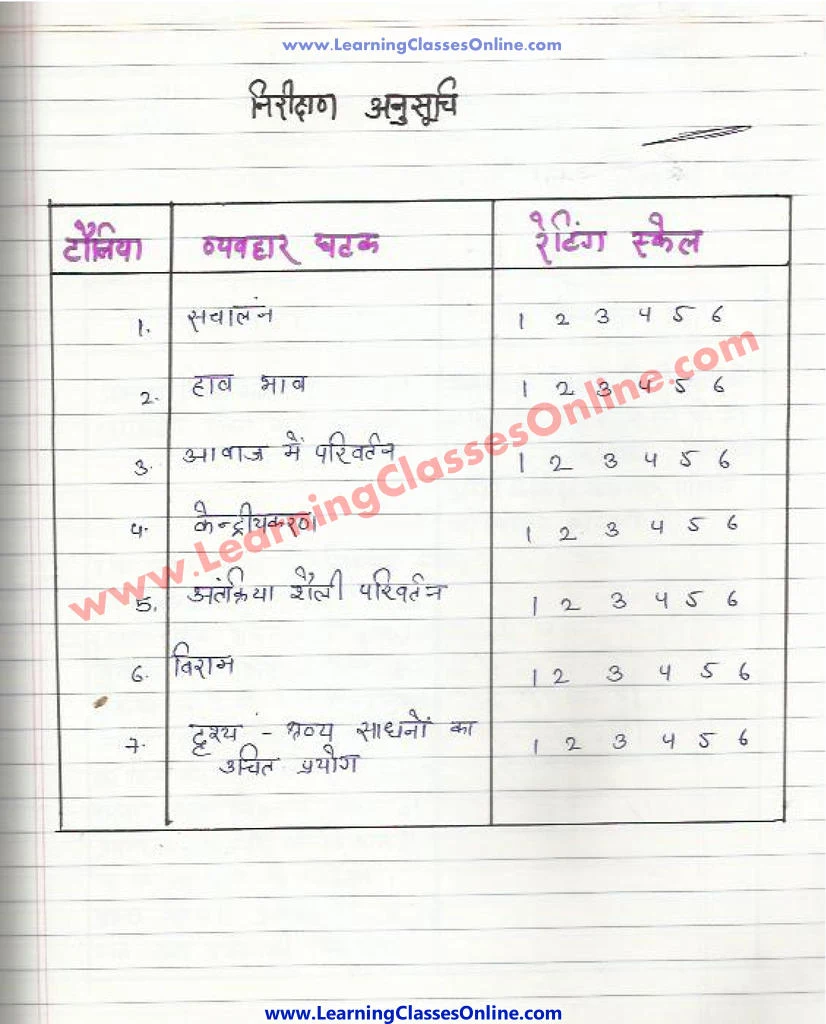 www.LearningClassesOnline.com
निरीक्षण अनुसूचि
टैलिया व्यवहार घटक रेटिंग स्केल
1. सचालंन 1 2 3 4 5 6
2. हाव भाव 1 2 3 4 5 6
3. आवाज में परिवर्तन 1 2 3 4 5 6
4. केन्द्रीयकरण 1 2 3 4 5 6
5. अंतक्रिया शैली परिवर्तन 1 2 3 4 5 6
6. विराम 1 2 3 4 5 6
7. दृश्यं - श्रव्य साधनों का 1 2 3 4 5 6
उचित प्रयोग
www.LearningClassesOnline.com
www.LearningClassesOnline.com